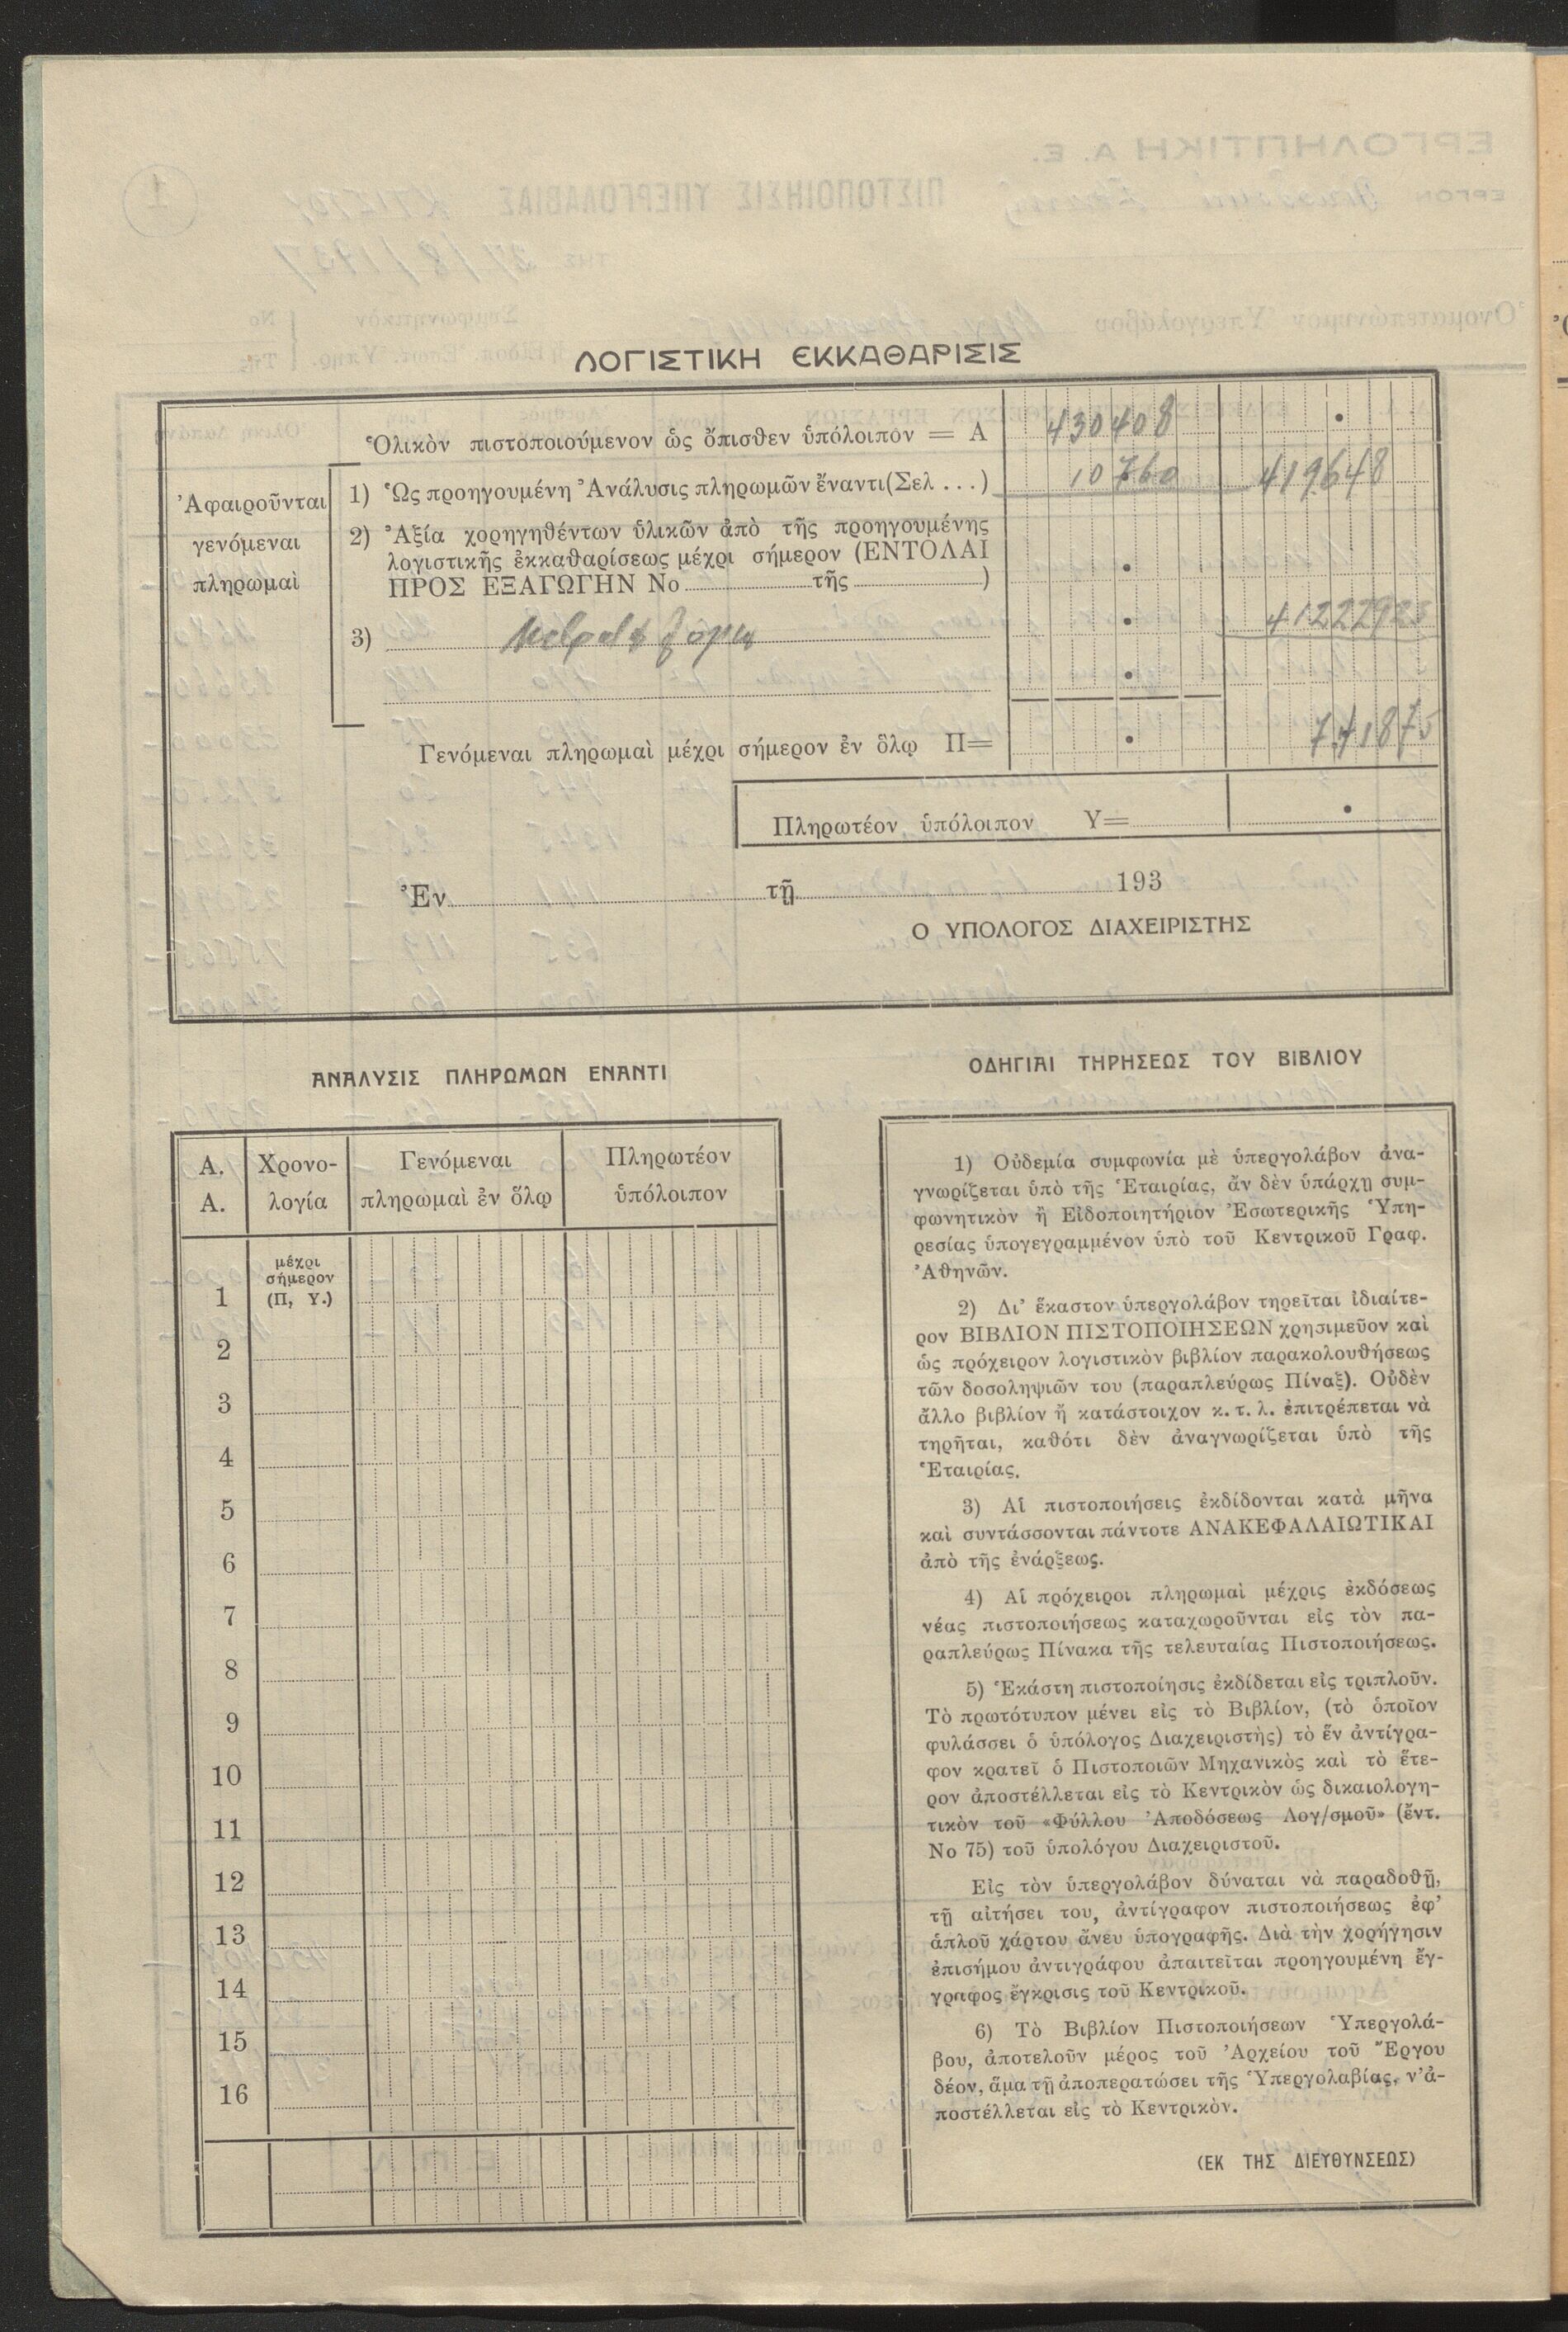 ΛΟΓΙΣΤΙΚΗ ΕΚΚΑΘΑΡΙΣΙΣ
Ὁλικὸν πιστοποιούμενον ὡς ὄπισθεν ὑπόλοιπον = Α 430408
Ἀφαιροῦνται
γενόμεναι
πληρωμαὶ
1) Ὡς προηγουμένη Ἀνάλυσις πληρωμῶν ἔναντι (Σελ ...) 10760 419648
2) Ἀξία χορηγηθέντων ὑλικῶν ἀπὸ τῆς προηγουμένης
λογιστικῆς ἐκκαθαρίσεως μέχρι σήμερον (ΕΝΤΟΛΑΙ
ΠΡΟΣ ΕΞΑΓΩΓΗΝ Νο τῆς )
3) 41222925
Γενόμεναι πληρωμαὶ μέχρι σήμερον ἐν ὅλῳ Π= 741875
Πληρωτέον ὑπόλοιπον Υ=
Ἐν τῇ 193
Ο ΥΠΟΛΟΓΟΣ ΔΙΑΧΕΙΡΙΣΤΗΣ
ΑΝΑΛΥΣΙΣ ΠΛΗΡΩΜΩΝ ΕΝΑΝΤΙ
Α. Χρονο- Γενόμεναι Πληρωτέον
Α. λογία πληρωμαὶ ἐν ὅλῳ ὑπόλοιπον
μέχρι
σήμερον
1 (Π, Υ.)
2
3
4
5
6
7
8
9
10
11
12
13
14
15
16
ΟΔΗΓΙΑΙ ΤΗΡΗΣΕΩΣ ΤΟΥ ΒΙΒΛΙΟΥ
1) Οὐδεμία συμφωνία μὲ ὑπεργολάβον ἀνα-
γνωρίζεται ὑπὸ τῆς Ἑταιρίας, ἂν δὲν ὑπάρχῃ συμ-
φωνητικὸν ἢ Εἰδοποιητήριον Ἐσωτερικῆς Ὑπη-
ρεσίας ὑπογεγραμμένον ὑπὸ τοῦ Κεντρικοῦ Γραφ.
Ἀθηνῶν.
2) Δι' ἕκαστον ὑπεργολάβον τηρεῖται ἰδιαίτε-
ρον ΒΙΒΛΙΟΝ ΠΙΣΤΟΠΟΙΗΣΕΩΝ χρησιμεῦον καὶ
ὡς πρόχειρον λογιστικὸν βιβλίον παρακολουθήσεως
τῶν δοσοληψιῶν του (παραπλεύρως Πίναξ). Οὐδὲν
ἄλλο βιβλίον ἢ κατάστοιχον κ. τ. λ. ἐπιτρέπεται νὰ
τηρῆται, καθότι δὲν ἀναγνωρίζεται ὑπὸ τῆς
Ἑταιρίας.
3) Αἱ πιστοποιήσεις ἐκδίδονται κατὰ μῆνα
καὶ συντάσσονται πάντοτε ΑΝΑΚΕΦΑΛΑΙΩΤΙΚΑΙ
ἀπὸ τῆς ἐνάρξεως.
4) Αἱ πρόχειροι πληρωμαὶ μέχρις ἐκδόσεως
νέας πιστοποιήσεως καταχωροῦνται εἰς τὸν πα-
ραπλεύρως Πίνακα τῆς τελευταίας Πιστοποιήσεως.
5) Ἑκάστη πιστοποίησις ἐκδίδεται εἰς τριπλοῦν.
Τὸ πρωτότυπον μένει εἰς τὸ Βιβλίον, (τὸ ὁποῖον
φυλάσσει ὁ ὑπόλογος Διαχειριστὴς) τὸ ἓν ἀντίγρα-
φον κρατεῖ ὁ Πιστοποιῶν Μηχανικὸς καὶ τὸ ἕτε-
ρον ἀποστέλλεται εἰς τὸ Κεντρικὸν ὡς δικαιολογη-
τικὸν τοῦ «Φύλλου Ἀποδόσεως Λογ/σμοῦ» (ἔντ.
Νο 75) τοῦ ὑπολόγου Διαχειριστοῦ.
Εἰς τὸν ὑπεργολάβον δύναται νὰ παραδοθῇ,
τῇ αἰτήσει του, ἀντίγραφον πιστοποιήσεως ἐφ'
ἁπλοῦ χάρτου ἄνευ ὑπογραφῆς. Διὰ τὴν χορήγησιν
ἐπισήμου ἀντιγράφου ἀπαιτεῖται προηγουμένη ἔγ-
γραφος ἔγκρισις τοῦ Κεντρικοῦ.
6) Τὸ Βιβλίον Πιστοποιήσεων Ὑπεργολά-
βου, ἀποτελοῦν μέρος τοῦ Ἀρχείου τοῦ Ἔργου
δέον, ἅμα τῇ ἀποπερατώσει τῆς Ὑπεργολαβίας, ν'ἀ-
ποστέλλεται εἰς τὸ Κεντρικὸν.
(ΕΚ ΤΗΣ ΔΙΕΥΘΥΝΣΕΩΣ)